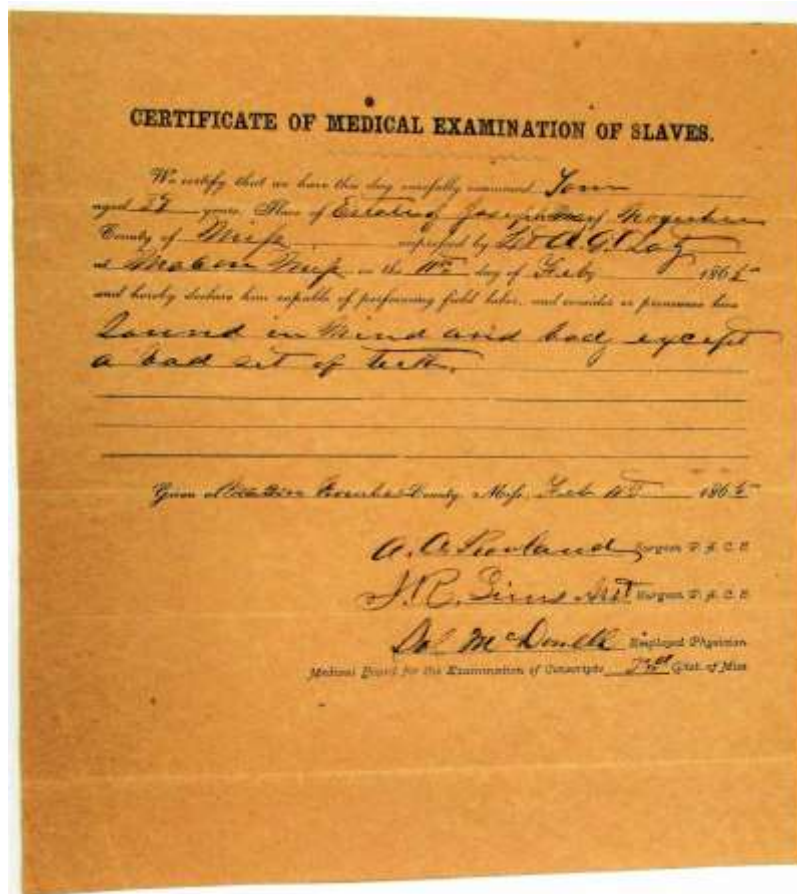 CERTIFICATE OF MEDICAL EXAMINATION OF SLAVES.
We certify that we have this day carefully examined Tom
aged years, Slave of Joseph
County of Miss impressed by Lt A. G.
at Macon Miss on the 11th day of Feby 1865
and hereby declare him capable of performing field labor, and consider or pronounce him
Sound in mind and body except
a bad set of teeth.
Given at County, Miss, Feb 11th 1865
A. A. Rowland Surgeon P. A. C. S.
J. R. Sims Asst Surgeon P. A. C. S.
McDowell Employed Physician
Medical Board for the Examination of Conscripts Dist. of Miss